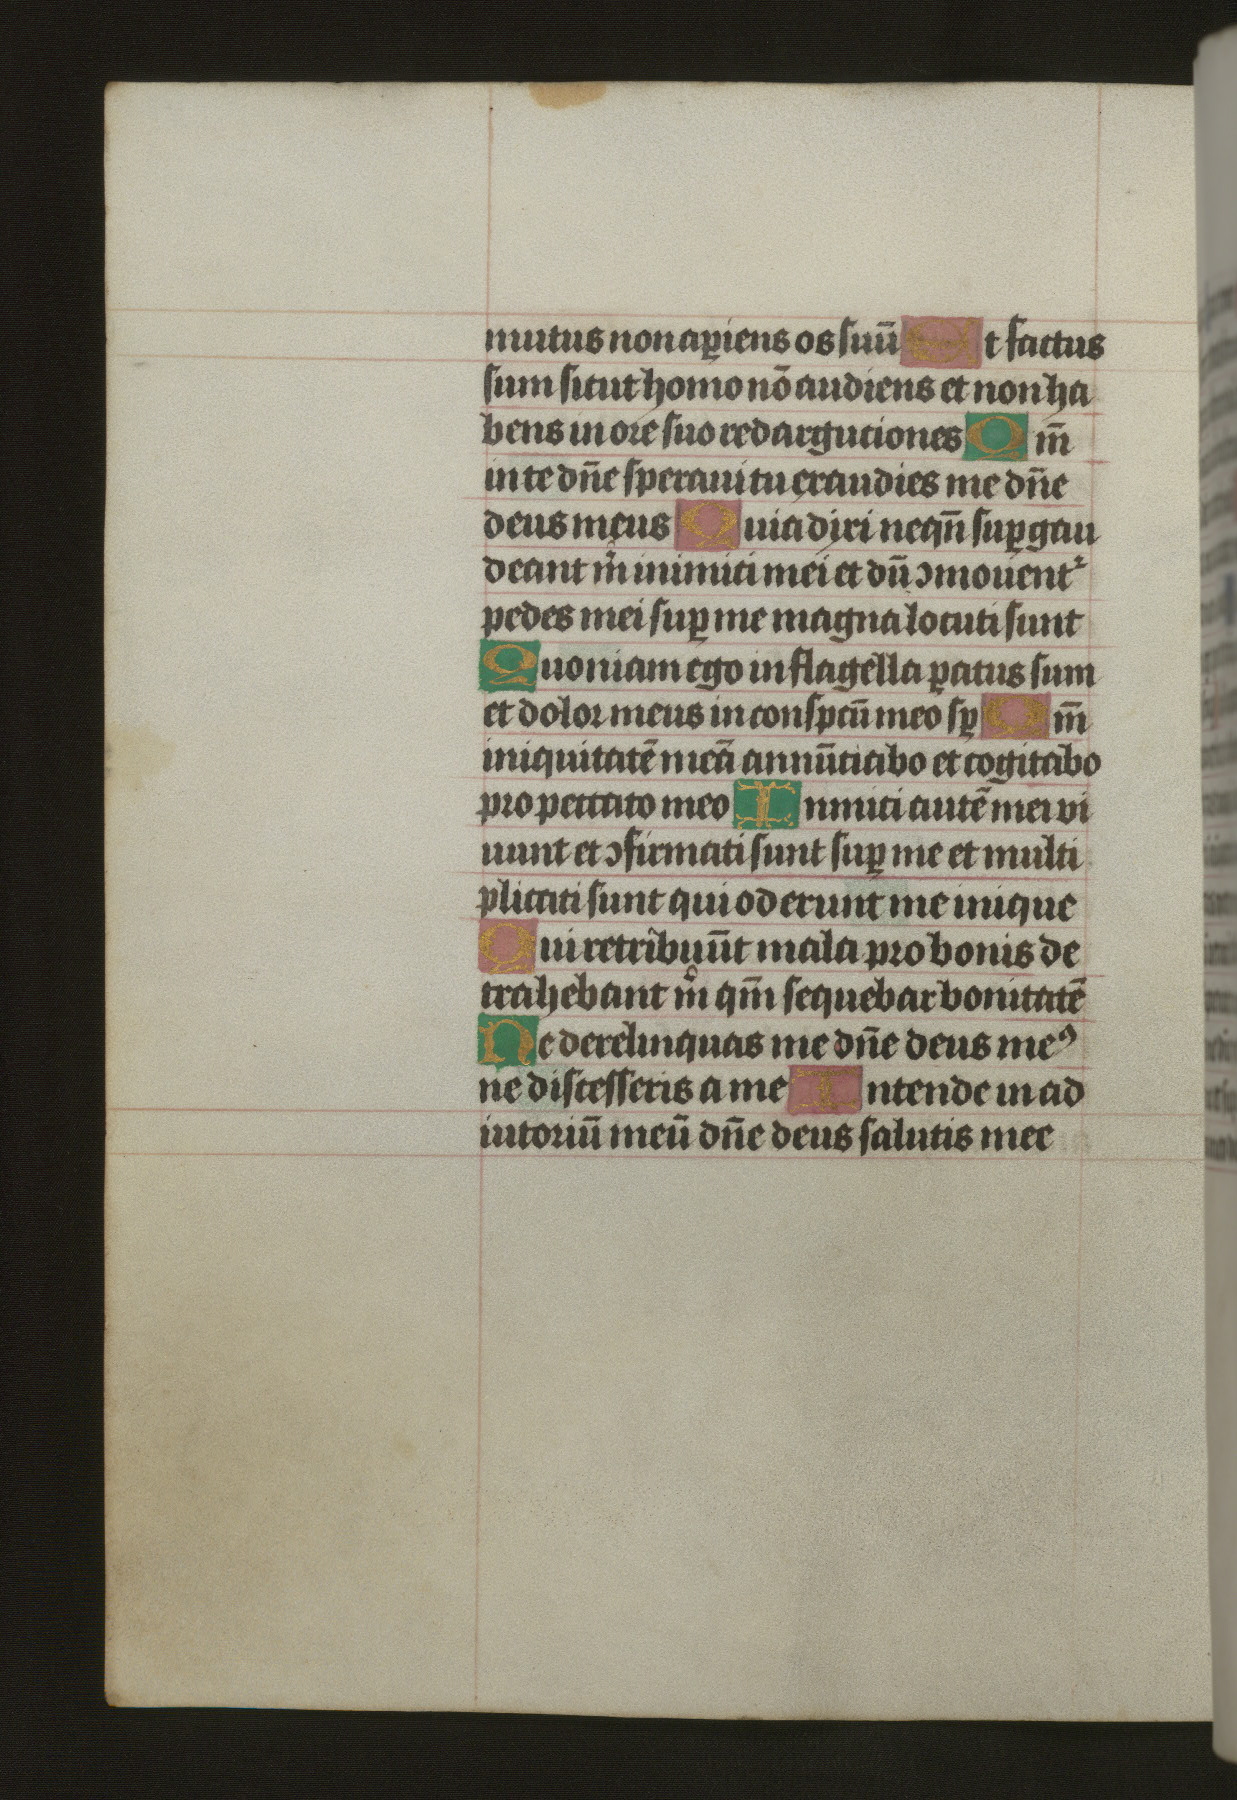 mutus non aꝑiens os suū Et factus
sum sicut homo nō audiens et non ha
bens in ore suo redargutiones Qm̄
in te dn̄e speraui tu exaudies me dn̄e
deus meus Quia dixi neqn̄ suꝑ gau
deant m̄ inimici mei et dū ↄmouent᷑
pedes mei suꝑ me magna locuti sunt
Quoniam ego in flagella ꝑatus sum
et dolor meus in conspcū meo sꝑ Qm̄
iniquitatē meā annūtiabo et cogitabo
pro peccato meo Inimici autē mei vi
uunt et ↄfirmati sunt suꝑ me et multi
plicati sunt qui oderunt me inique
Qui retribuūt mala pro bonis de
trahebant m̊ qm̄ sequebar bonitatē
Ne derelinquas me dn̄e deus meꝰ
ne discesseris a me Intende in ad
iutoriū meū dn̄e deus salutis mee